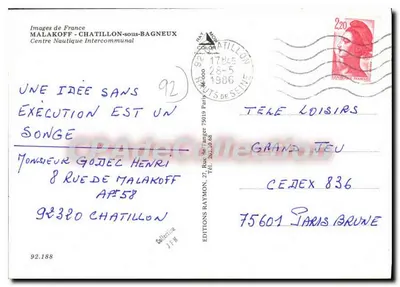 Images de France
MALAKOFF - CHATILLON-sous-BAGNEUX
Centre Nautique Intercommunal
92 CHATILLON
17H45
26-5
1986
HAUTS DE SEINE
2,20
92
UNE IDÉE SANS
EXÉCUTION EST UN
SONGE
MONSIEUR GODEL HENRI
8 RUE DE MALAKOFF
APT 58
92320 CHATILLON
TELE LOISIRS
GRAND JEU
CEDEX 836
75601 PARIS BRUNE
EDITIONS RAYMON, 27, Rue de Tanger 75019 Paris
Collection
92.188